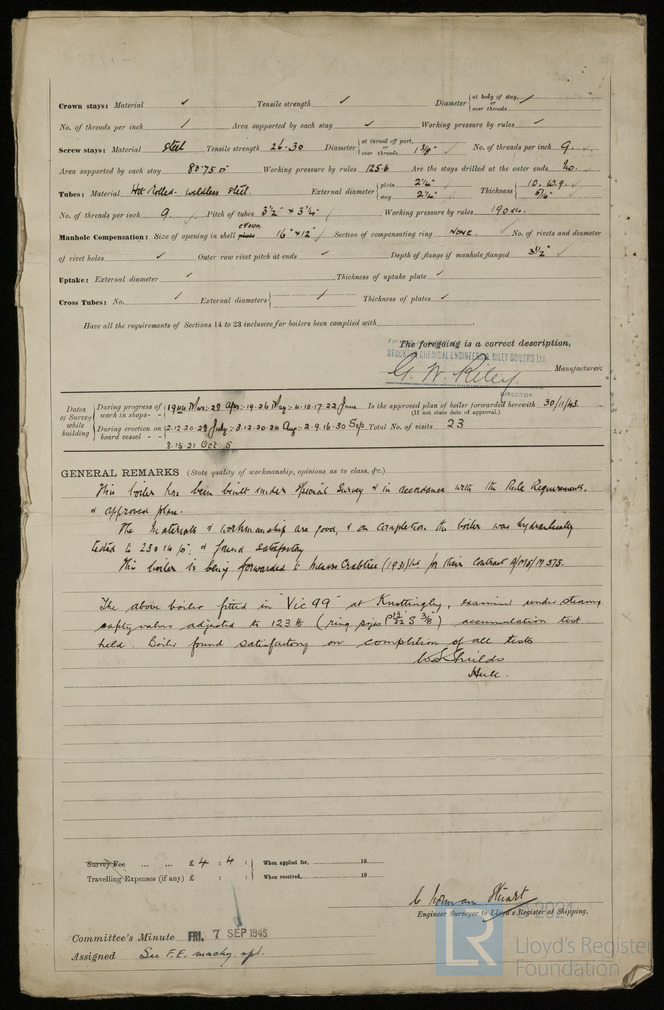 Crown stays: Material ✓ Tensile strength ✓ Diameter { at body of stay, or over threads ✓
No. of threads per inch ✓ Area supported by each stay ✓ Working pressure by rules ✓
Screw stays: Material Steel Tensile strength 26-30 Diameter { at turned off part, or over threads 1 3/8" ✓ No. of threads per inch 9. ✓
Area supported by each stay Working pressure by rules 125.6 Are the stays drilled at the outer ends No. ✓
Tubes: Material Hot Rolled. Weldless Steel. External diameter { plain 2 1/4" ✓ stay 2 1/4" ✓ Thickness { 10. W.G. 5/16" ✓
No. of threads per inch 9. Pitch of tubes 3 1/2" x 3 1/4" ✓ Working pressure by rules 190
Manhole Compensation: Size of opening in shell plate crown 16" x 12" ✓ Section of compensating ring None. ✓ No. of rivets and diameter
of rivet holes ✓ Outer row rivet pitch at ends ✓ Depth of flange if manhole flanged 3 1/2" ✓
Uptake: External diameter ✓ Thickness of uptake plate ✓
Cross Tubes: No. ✓ External diameters { ✓ Thickness of plates ✓
Have all the requirements of Sections 14 to 23 inclusive for boilers been complied with
The foregoing is a correct description,
STOCKTON CHEMICAL ENGINEERS & RILEY BOILERS LTD.
G. W. Riley Manufacturer.
DIRECTOR
Dates of Survey while building { During progress of work in shops - - { 1944 Mar: 28 Apr: 19-26 May: 4-10-17-22 June In the approved plan of boiler forwarded herewith 30/11/43.
(If not state date of approval.)
During erection on board vessel - - - { 2-12-20-28 July: 3-12-20-26 Aug: 2-9-16-30 Sep Total No. of visits 23
8-15-21 Oct: 5
GENERAL REMARKS (State quality of workmanship, opinions as to class, &c.)
This boiler has been built under Special Survey & in accordance with the Rule Requirements,
& approved plan.
The Materials & workmanship are good, & on completion the boiler was hydraulically
tested to 230 lb/□" & found satisfactory
This boiler is being forwarded to Messrs Crabtree (1931) Ltd for their contract
The above boiler fitted in "Vic 99" at Knottingley, examined under steam,
safety valves adjusted to 123 lb (ring sizes P 12/32 S 3/8) accumulation test
held. Boiler found satisfactory on completion of all tests
W S Shields
Hull.
Survey Fee ... ... £ 4 : 4 : } When applied for, 19
Travelling Expenses (if any) £ : : } When received, 19
C Norman Stuart
Engineer Surveyor to Lloyd's Register of Shipping.
© 2021
Committee's Minute FRI. 7 SEP 1945
Assigned See F.E. machy. rpt.
LR
Lloyd's Register
Foundation